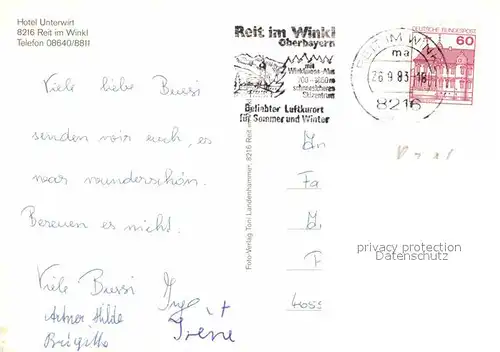 Hotel Unterwirt
8216 Reit im Winkl
Telefon 08640/8811
Reit im Winkl
Oberbayern
mit
Winklmoos-Alm
700 - 1850 m
schneesicheres
Skizentrum
Beliebter Luftkurort
für Sommer und Winter
REIT IM WINKL
ma
26.9.83-18
8216
DEUTSCHE BUNDESPOST
60
Viele liebe Bussi
senden wir euch, es
war wunderschön.
Bereuen es nicht.
Viele Bussi Inge
Hilde + Irene
Brigitte
Foto-Verlag Toni Landenhammer, 8216 Reit im
An
Fa
privacy protection
Datenschutz